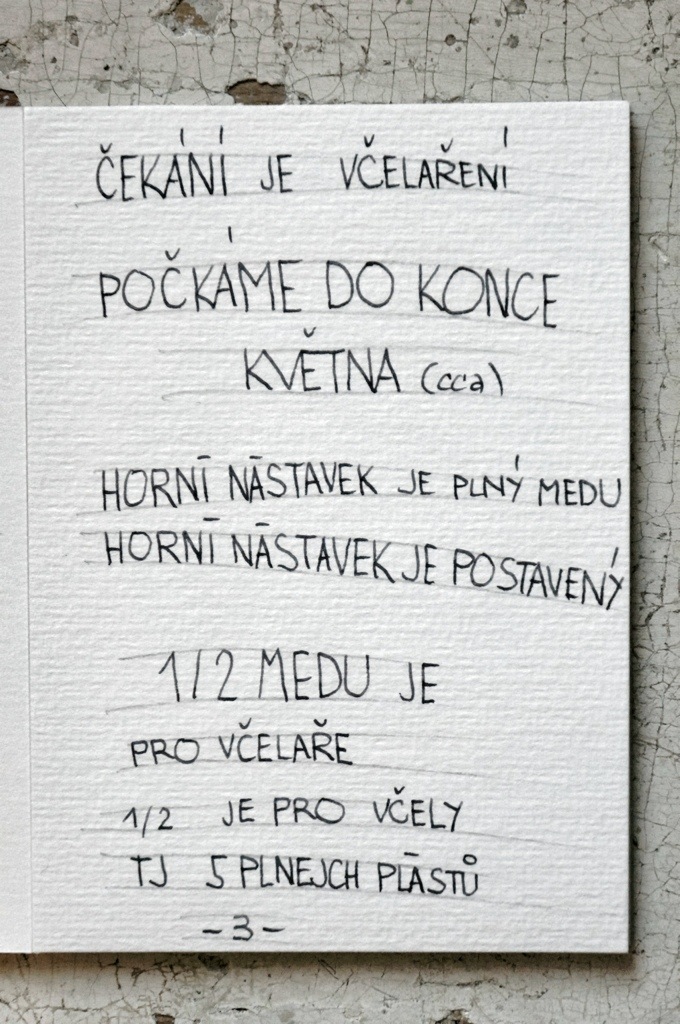 ČEKÁNÍ JE VČELAŘENÍ
POČKÁME DO KONCE
KVĚTNA (cca)
HORNÍ NÁSTAVEK JE PLNÝ MEDU
HORNÍ NÁSTAVEK JE POSTAVENÝ
1/2 MEDU JE
PRO VČELAŘE
1/2 JE PRO VČELY
TJ 5 PLNEJCH PLÁSTŮ
-3-